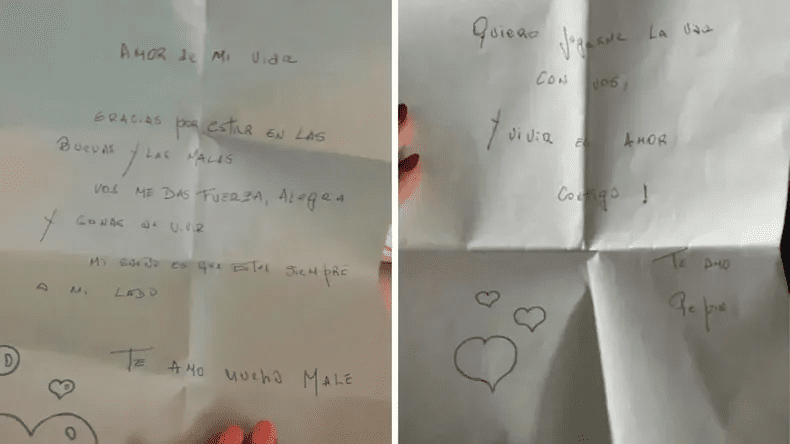 AMOR de MI VIDA
GRACIAS POR ESTAR EN LAS
BUENAS Y LAS MALAS
VOS ME DAS FUERZA, ALEGRA
Y GANAS DE VIVIR
MI SUEÑO ES QUE ESTES SIEMPRE
A MI LADO
TE AMO MUCHO MALE
D
QUIERO JUGARME LA VIDA
CON VOS,
Y VIVIR EL AMOR
CONTIGO !
TE AMO